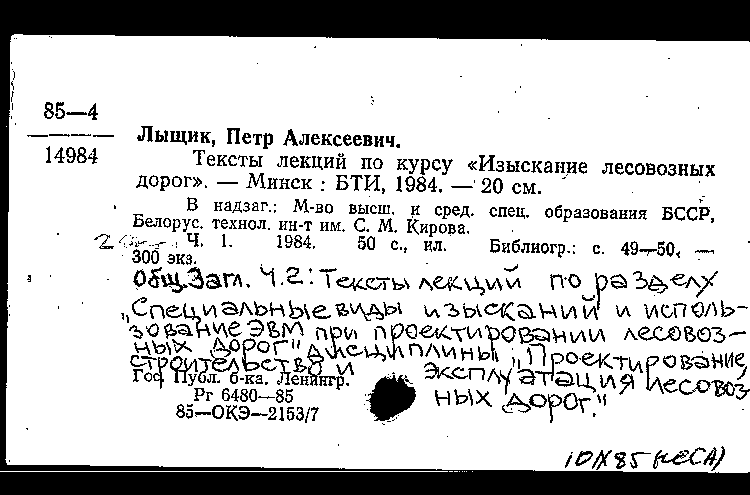 85—4
14984
Лыщик, Петр Алексеевич.
Тексты лекций по курсу «Изыскание лесовозных
дорог». — Минск : БТИ, 1984. — 20 см.
В надзаг.: М-во высш. и сред. спец. образования БССР,
Белорус. технол. ин-т им. С. М. Кирова.
Ч. 1. 1984. 50 с., ил. Библиогр.: с. 49—50. —
300 экз.
Общ. Загл. Ч.2: Тексты лекций по разделу
„Специальные виды изысканий и исполь-
зование ЭВМ при проектировании лесовоз-
ных дорог" дисциплины „Проектирование,
строительство и эксплуатация лесовоз-
ных дорог."
Гос. Публ. б-ка. Ленингр.
Рг 6480—85
85—ОКЭ—2153/7